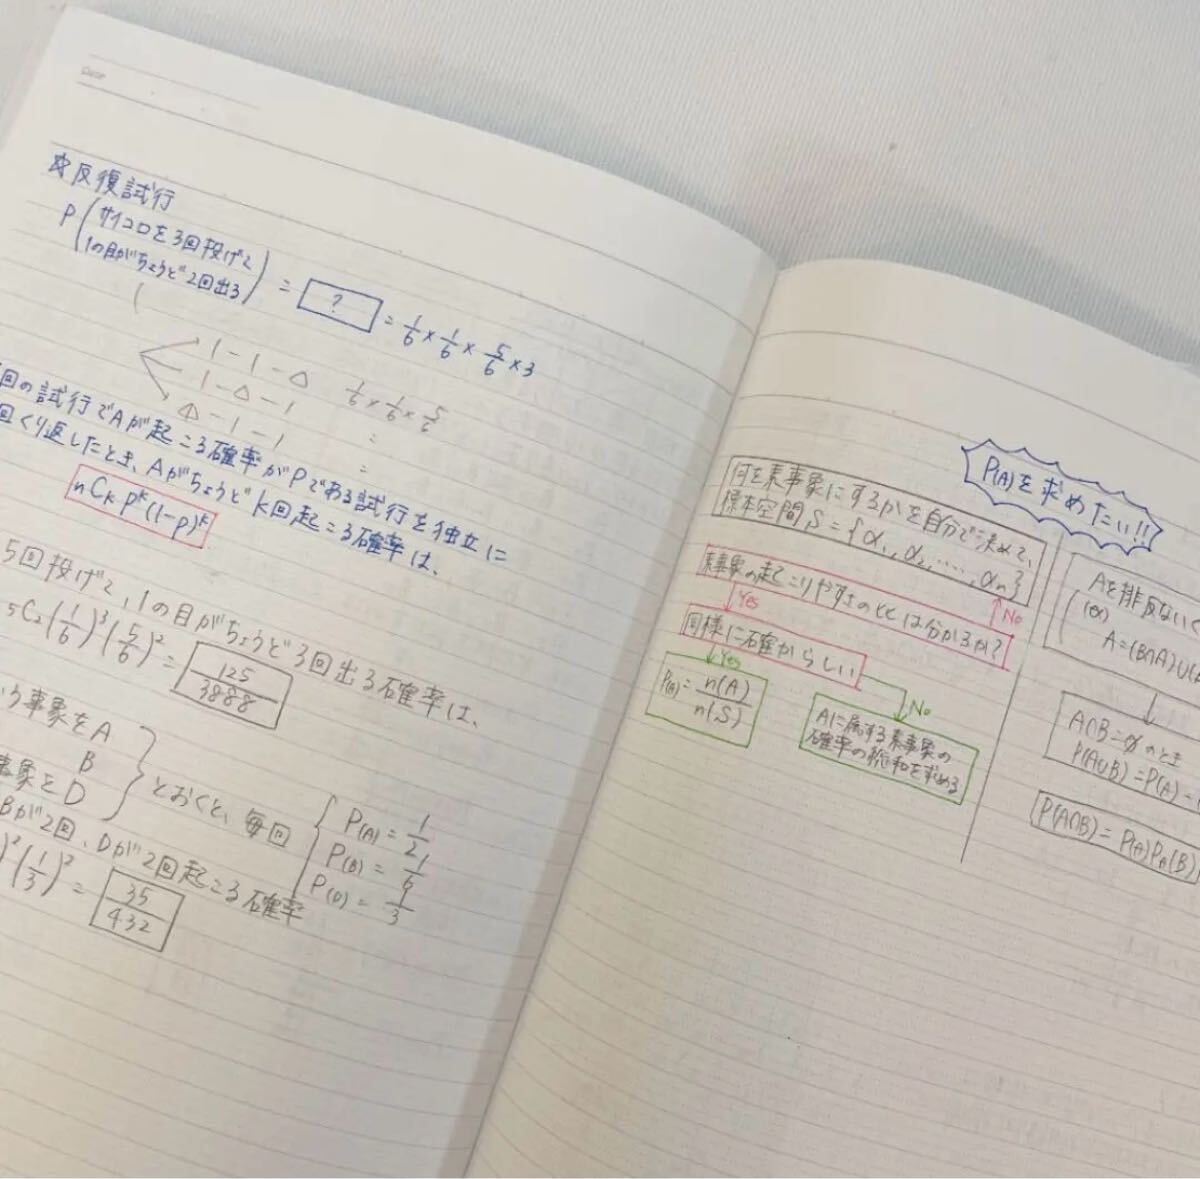 Date
☆反復試行
P(サイコロを3回投げて
1の目がちょうど2回出る) = ? = 1/6 × 1/6 × 5/6 × 3
1 - 1 - △ 1/6 × 1/6 × 5/6
1 - △ - 1 〃
△ - 1 - 1 〃
回の試行でAが起こる確率がPである試行を独立に
回くり返したとき、Aがちょうどk回起こる確率は、
nCk p^k (1-p)^k
5回投げて、1の目がちょうど3回出る確率は、
5C2 (1/6)^3 (5/6)^2 = 125/3888
いう事象をA
B
事象をD
とおくと、毎回
P(A) = 1/2
P(B) = 1/6
P(D) = 1/3
Bが2回、Dが2回起こる確率
)^2 (1/3)^2 = 35/432
P(A)を求めたい!!
何を素事象にするかを自分で決めて、
標本空間 S = {α1, α2, ‥‥, αn}
素事象の起こりやすさの比は分かるか?
Yes
No
同様に確からしい
Yes
No
P(A) = n(A)/n(S)
Aに属する素事象の
確率の総和を求める
Aを排反ない
(ex)
A = (B∩A)∪(A
↓
A∩B = ∅ のとき
P(A∪B) = P(A) -
P(A∩B) = P(A)PA(B)